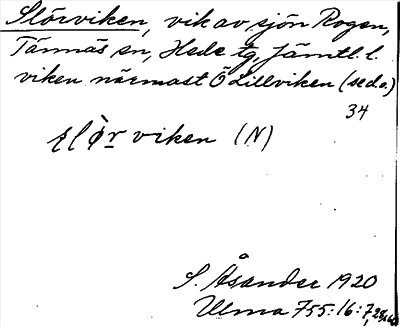 Slörviken, vik av sjön Rogen,
Tännäs sn, Hede tg, Jämtl. l.
viken närmast Ö Lillviken (se d.o.)
34
slö̀r viken (N)
S. Åsander 1920
Ulma 755:16:7,